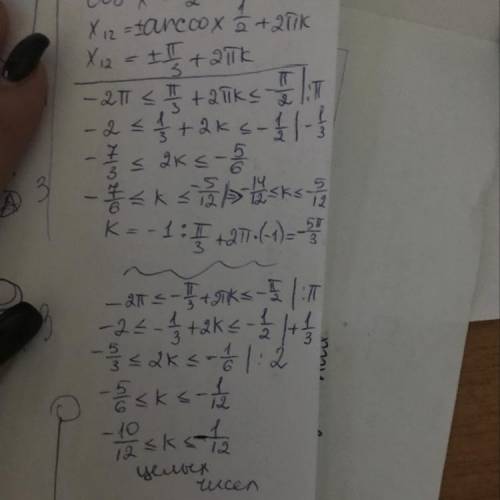 cos x = 2
x₁₂ = ±arccox 1/2 + 2πk
x₁₂ = ± π/3 + 2πk
-2π ≤ π/3 + 2πk ≤ -π/2 | :π
-2 ≤ 1/3 + 2k ≤ -1/2 | -1/3
-7/3 ≤ 2k ≤ -5/6
3
-7/6 ≤ k ≤ -5/12 | ⇒ -14/12 ≤ k ≤ -5/12
k = -1 : π/3 + 2π·(-1) = -5π/3
-2π ≤ -π/3 + 2πk ≤ -π/2 | :π
3
-2 ≤ -1/3 + 2k ≤ -1/2 | +1/3
-5/3 ≤ 2k ≤ -1/6 | : 2
-5/6 ≤ k ≤ -1/12
-10/12 ≤ k ≤ -1/12
целых
чисел